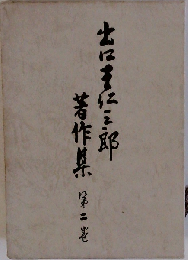 出口王仁三郎
著作集
第二巻